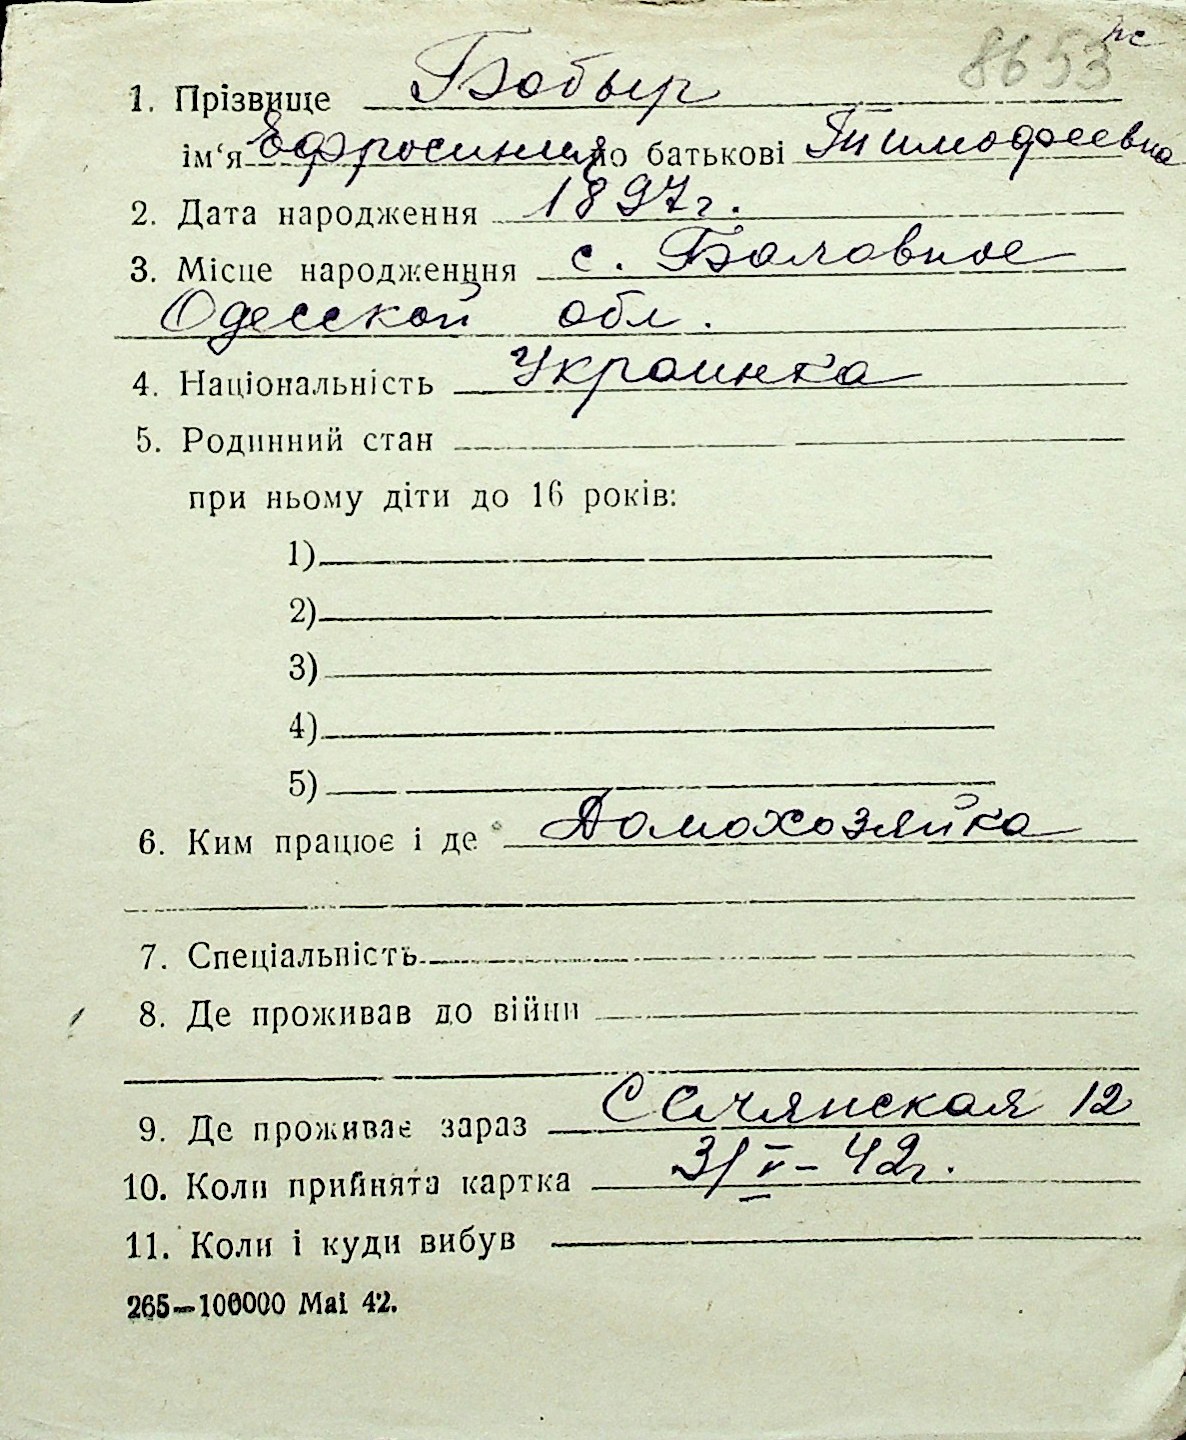 8653
1. Прізвище Бобыр
ім‘я Ефросиния по батькові Тимофеевна
2. Дата народження 1897г.
3. Місце народженння с. Баловное
Одесской обл.
4. Національність Украинка
5. Родинний стан
при ньому діти до 16 років:
1)
2)
3)
4)
5)
6. Ким працює і де Домохозяйка
7. Спеціальність
8. Де проживав до війни
9. Де проживає зараз 12
10. Коли прийнята картка 3/V-42г.
11. Коли і куди вибув
265—100000 Mai 42.